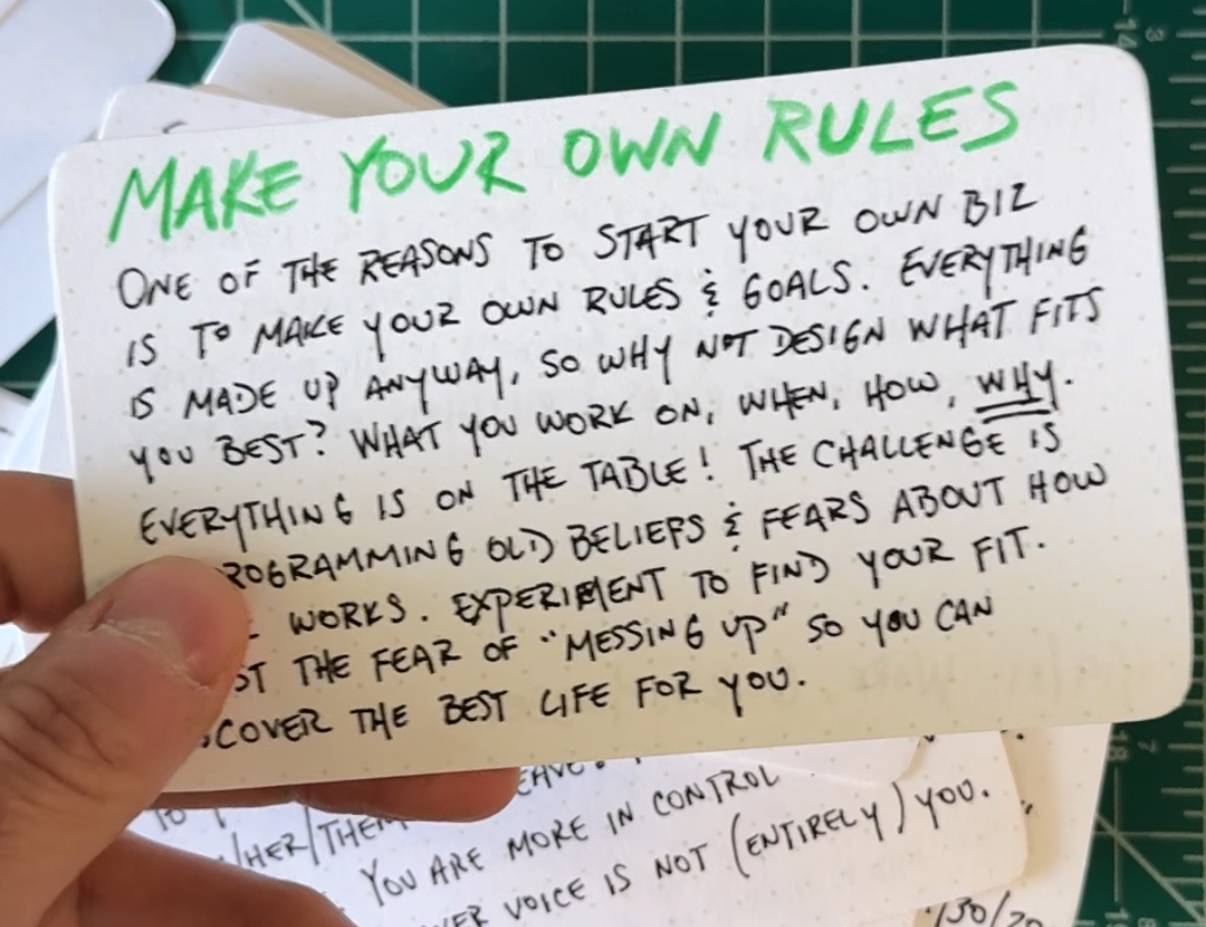 MAKE YOUR OWN RULES
ONE OF THE REASONS TO START YOUR OWN BIZ
IS TO MAKE YOUR OWN RULES & GOALS. EVERYTHING
IS MADE UP ANYWAY, SO WHY NOT DESIGN WHAT FITS
YOU BEST? WHAT YOU WORK ON, WHEN, HOW, WHY.
EVERYTHING IS ON THE TABLE! THE CHALLENGE IS
ROGRAMMING OLD BELIEFS & FEARS ABOUT HOW
WORKS. EXPERIMENT TO FIND YOUR FIT.
ST THE FEAR OF "MESSING UP" SO YOU CAN
COVER THE BEST LIFE FOR YOU.
TO
/HER/THEM
YOU ARE MORE IN CONTROL
VOICE IS NOT (ENTIRELY) YOU.